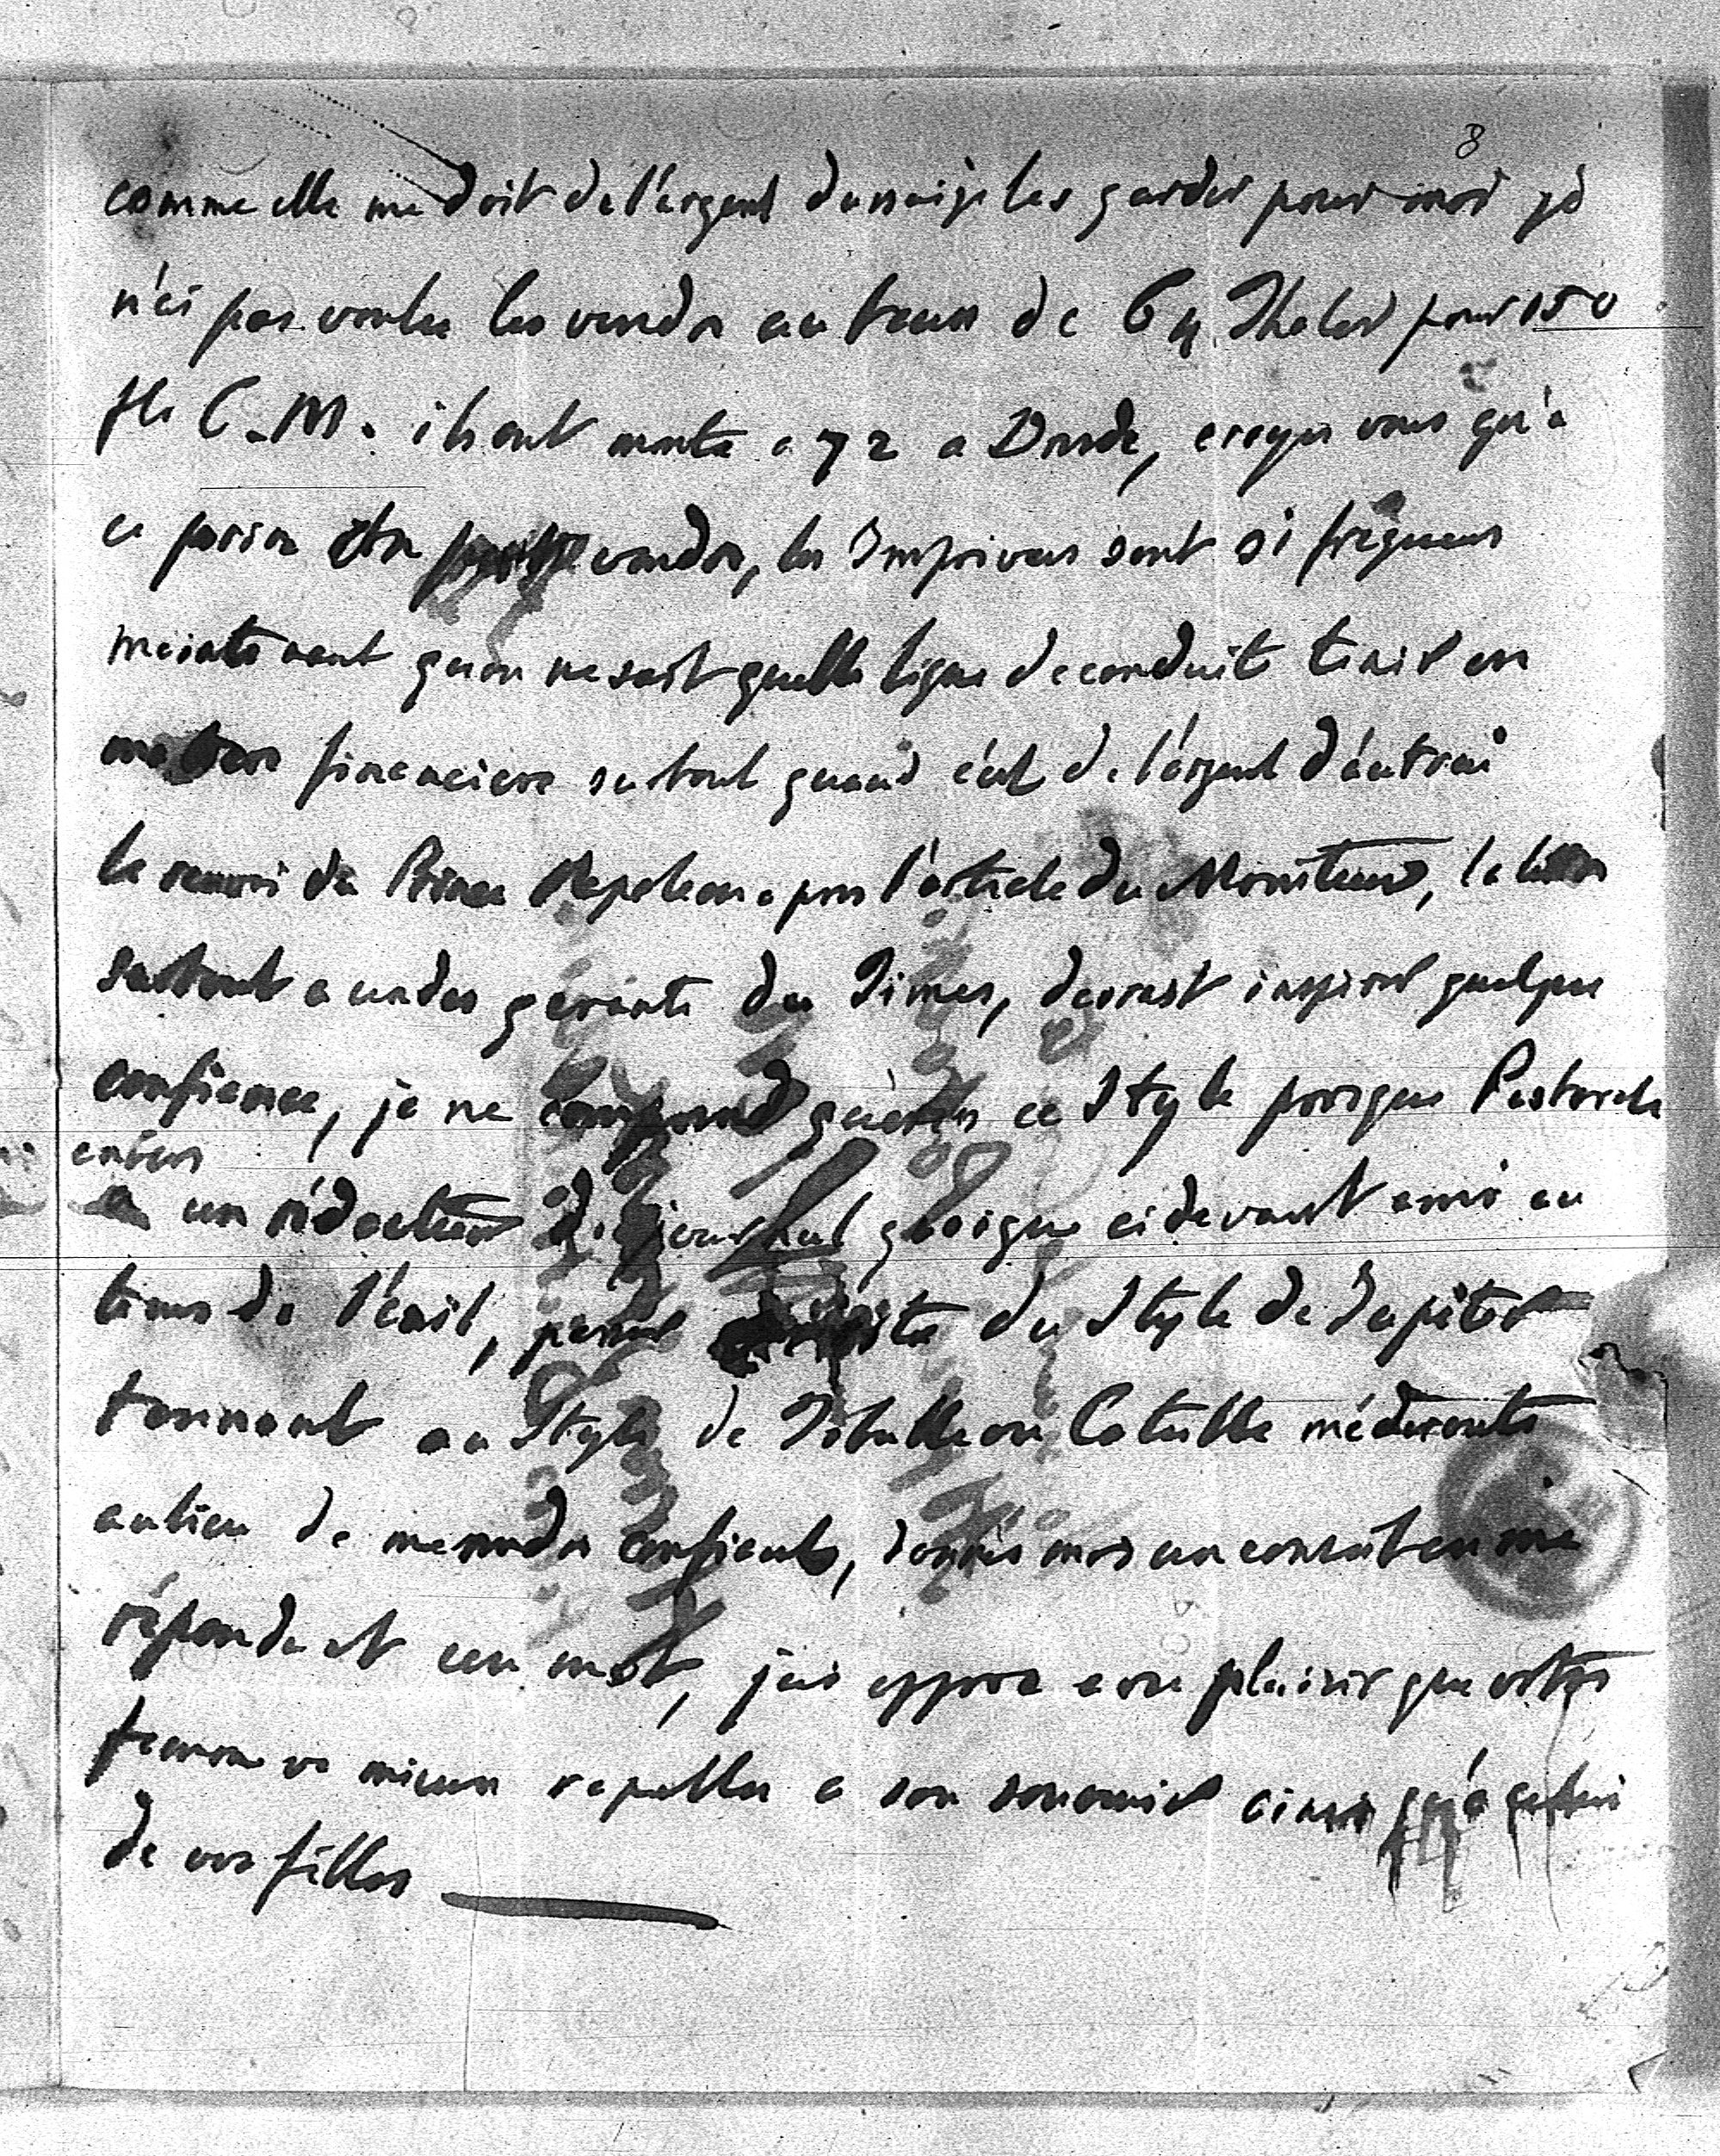 8
comme elle me doit de l'argent dussai je les garder pour moi je
n'ai pas voulu les vendre au taux de 64 Thaler pour 150
fls C.M. ils ont monté a 72 a Dresde, croyez vous qu'a
ce prix on vendre, les Imprévus sont si fréquens
maintenant qu'on ne sait quelle ligne de conduite tenir en
matiere financiere surtout quand c'est de l'argent d'autrui
le renvoi du Prince Napoleon, puis l'article du Moniteur, la lettre
surtout a un des gérants du Times, devrait inspirer quelque
confiance, je ne comprend guères ce Style presque Pastorale
envers
un rédacteur d'un journal quoique cidevant ami au
tems de l'éxil, passer du Style de Jupiter
tonnant au Style de Tibulle ou Catulle
au lieu de me rendre confient, donnés moi un conseil en me
répondant un mot, j'ai appris avec plaisir que votre
femme va mieux rapellez a son souvenir ainsi qu'a celui
de vos filles